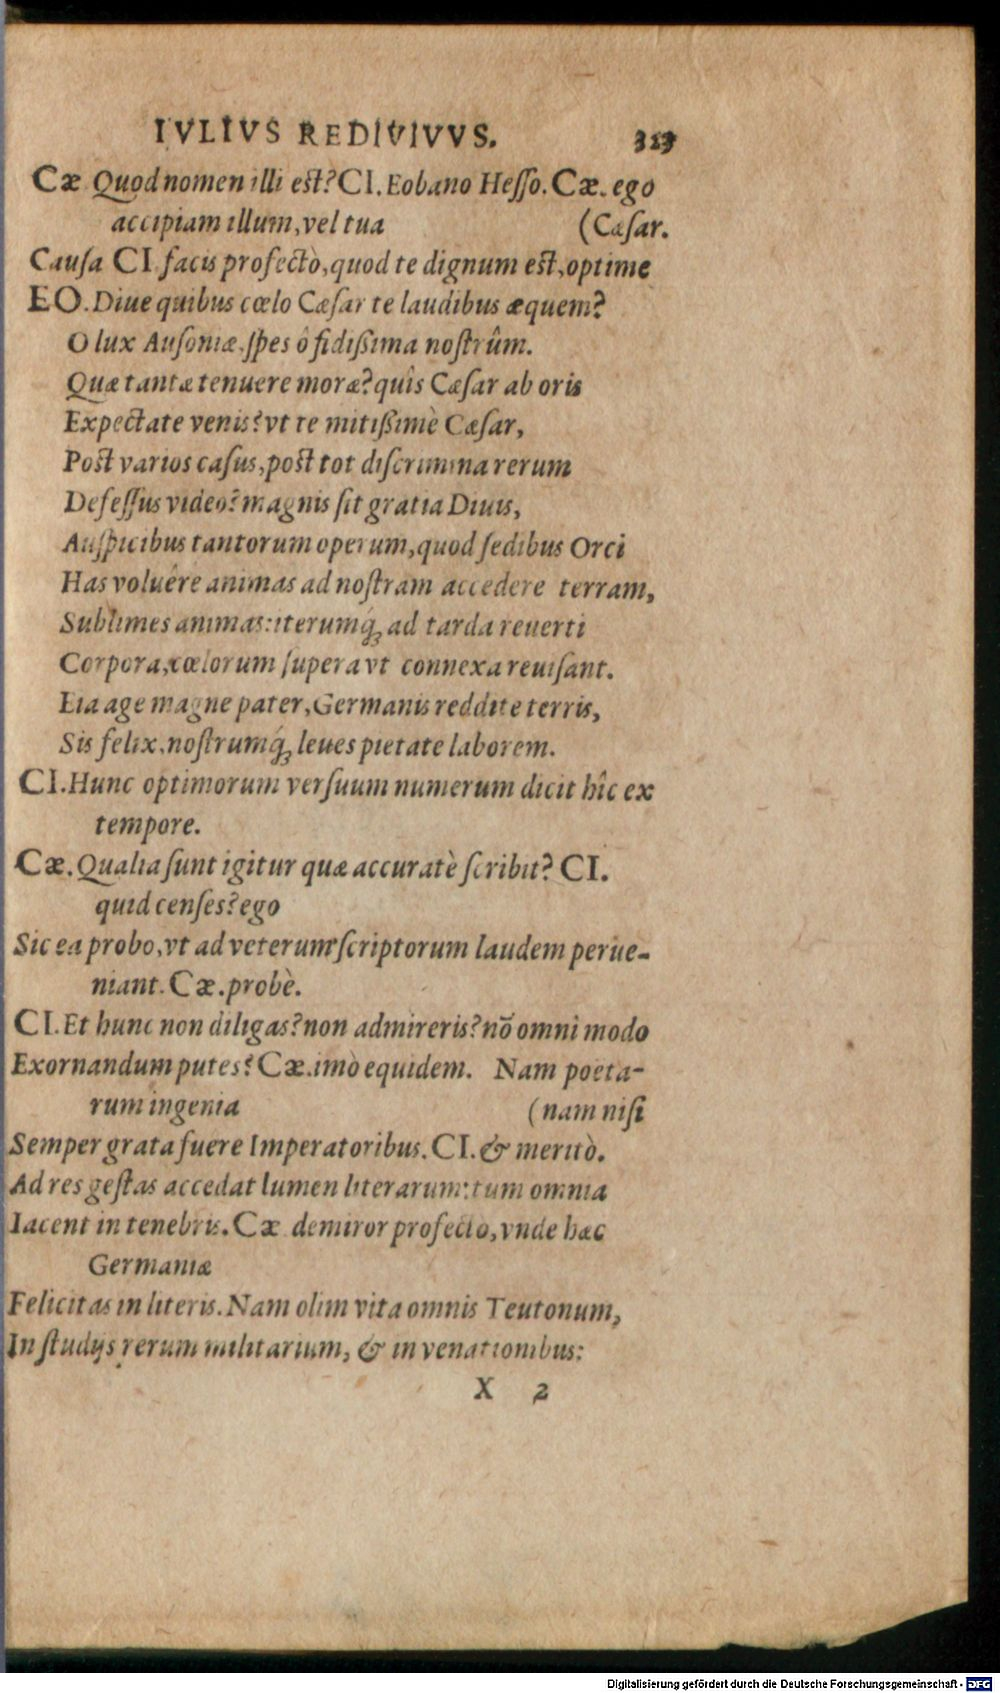 IVLIVS REDIVIVVS. 323
Cæ Quod nomen illi est? CI. Eobano Hesso. Cæ. ego
accipiam illum, vel tua (Cæsar.
Causa CI. facis profectò, quod te dignum est, optime
EO. Diue quibus cœlo Cæsar te laudibus æquem?
O lux Ausoniæ, spes ô fidißima nostrûm.
Quæ tantæ tenuere moræ? quîs Cæsar ab oris
Expectate venis? vt te mitißimè Cæsar,
Post varios casus, post tot discrimina rerum
Defessus video? magnis sit gratia Diuis,
Auspicibus tantorum operum, quod sedibus Orci
Has voluêre animas ad nostram accedere terram,
Sublimes animas: iterumq́; ad tarda reuerti
Corpora, cœlorum supera vt connexa reuisant.
Eia age magne pater, Germanis reddite terris,
Sis felix, nostrumq́; leues pietate laborem.
CI. Hunc optimorum versuum numerum dicit hîc ex
tempore.
Cæ. Qualia sunt igitur quæ accuratè scribit? CI.
quid censes? ego
Sic ea probo, vt ad veterum scriptorum laudem perue-
niant. Cæ. probè.
CI. Et hunc non diligas? non admireris? nō omni modo
Exornandum putes? Cæ. imò equidem. Nam poëta-
rum ingenia (nam nisi
Semper grata fuere Imperatoribus. CI. & meritò.
Ad res gestas accedat lumen literarum: tum omnia
Iacent in tenebris. Cæ demiror profecto, vnde hæc
Germaniæ
Felicitas in literis. Nam olim vita omnis Teutonum,
In studijs rerum militarium, & in venationibus:
X 2
Digitalisierung gefördert durch die Deutsche Forschungsgemeinschaft - DFG